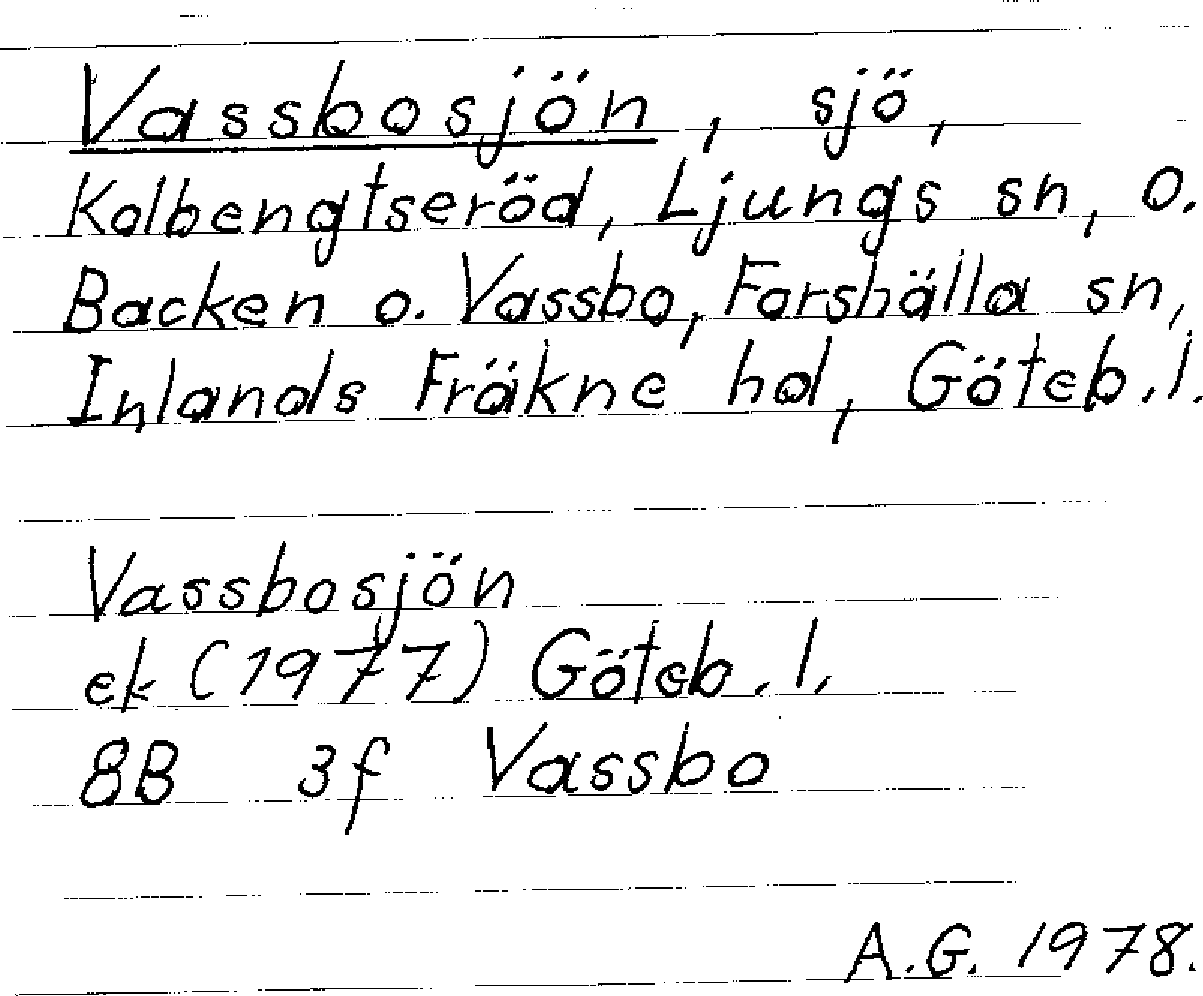 Vassbosjön, sjö,
Kolbengtseröd, Ljungs sn, o.
Backen o. Vassbo, Forshälla sn,
Inlands Fräkne hd, Göteb.l.
Vassbosjön
ek (1977) Göteb.l.
8B 3f Vassbo
A.G. 1978.